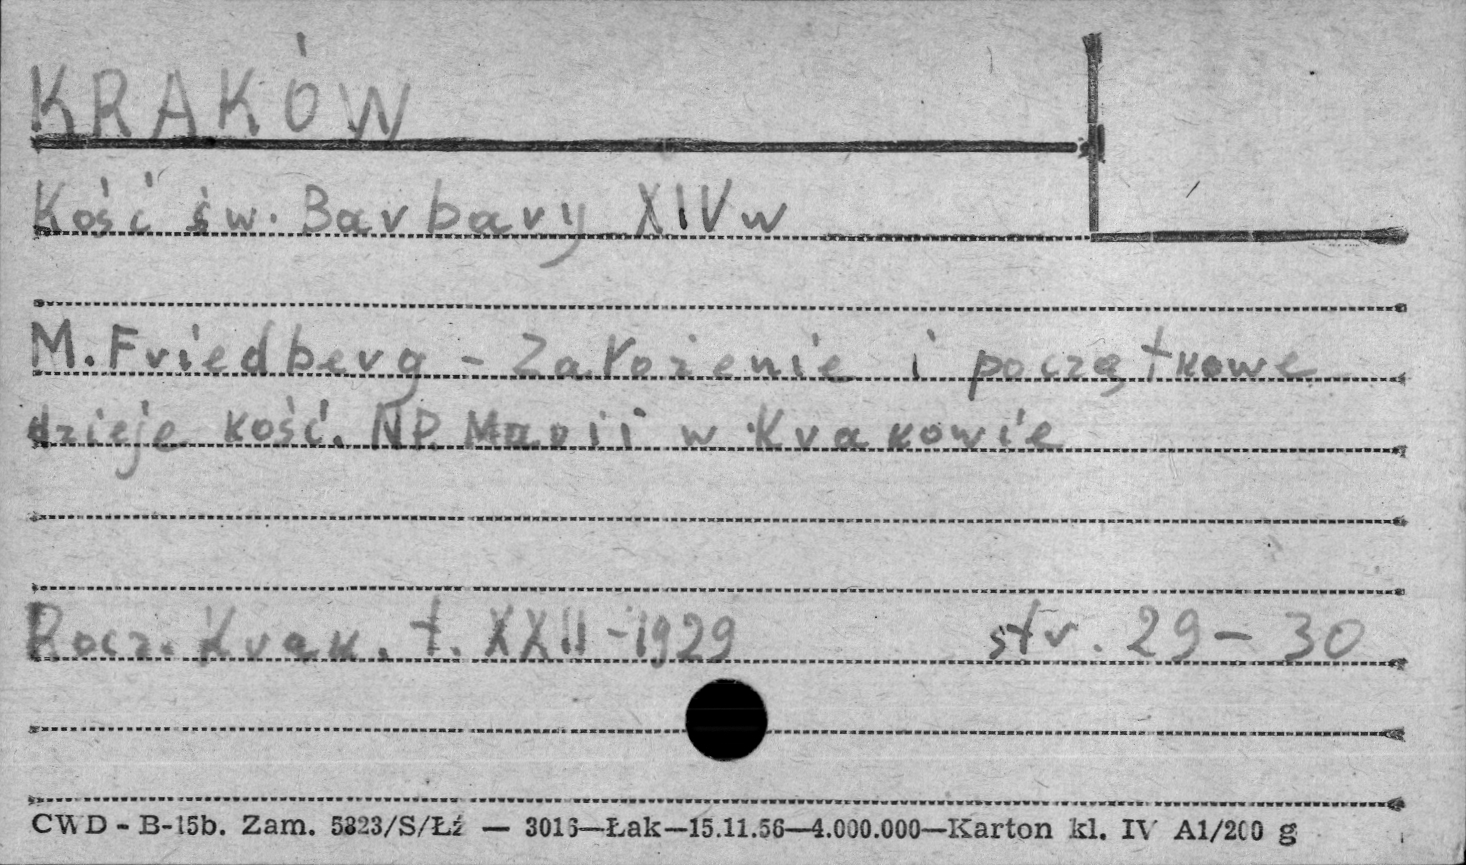 KRAKÓW
Kość św. Barbary XIV w
M. Friedberg - Założenie i początkowe
dzieje kość. NP. Marii w Krakowie
Rocz. Krak. t. XXII - 1929 str. 29 - 30
CWD - B-15b. Zam. 5823/S/Łź — 3016—Łak—15.11.56—4.000.000—Karton kl. IV A1/200 g